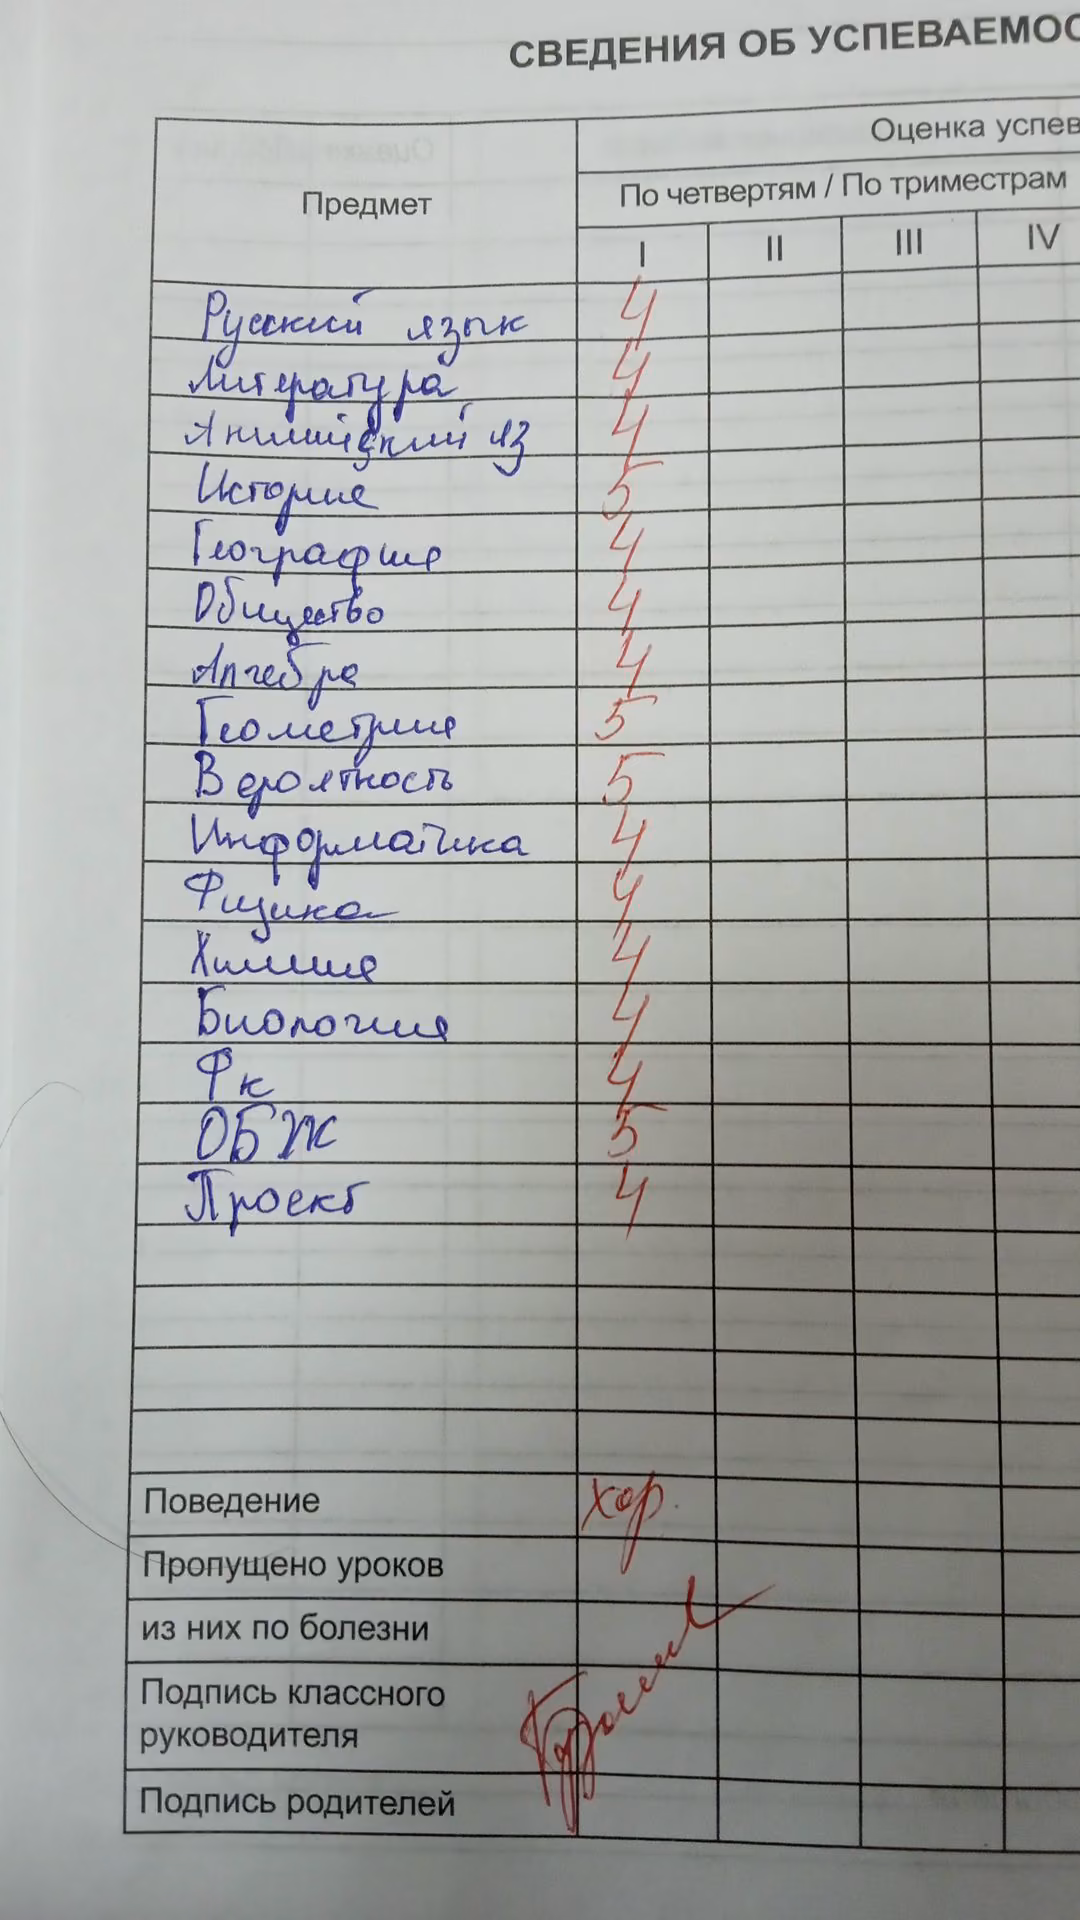 СВЕДЕНИЯ ОБ УСПЕВАЕМОС
Предмет
Оценка успев
По четвертям / По триместрам
I II III IV
Русский язык 4
Литература 4
Английский яз 4
История 5
География 4
Общество 4
Алгебра 4
Геометрия 5
Вероятность 5
Информатика 4
Физика 4
Химия 4
Биология 4
Фк 4
ОБЖ 5
Проект 4
Поведение хор.
Пропущено уроков
из них по болезни
Подпись классного
руководителя
Подпись родителей